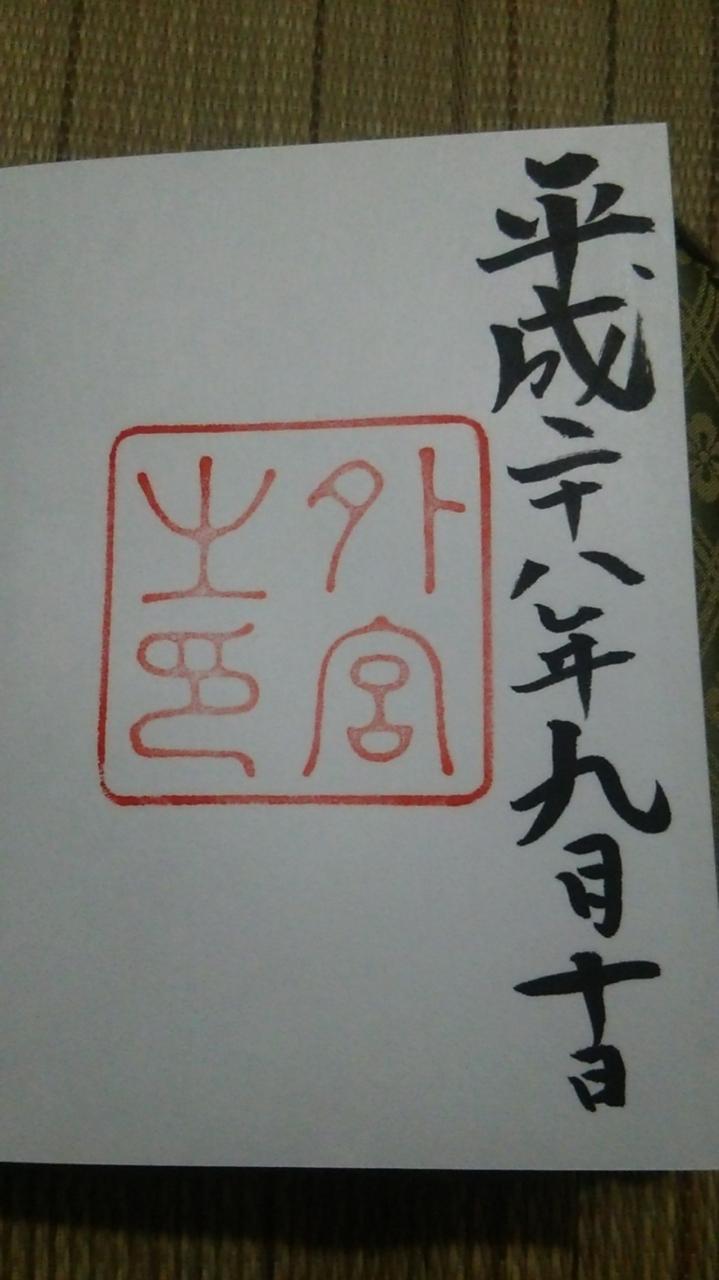 平成二十八年九月十日
外宮
之印